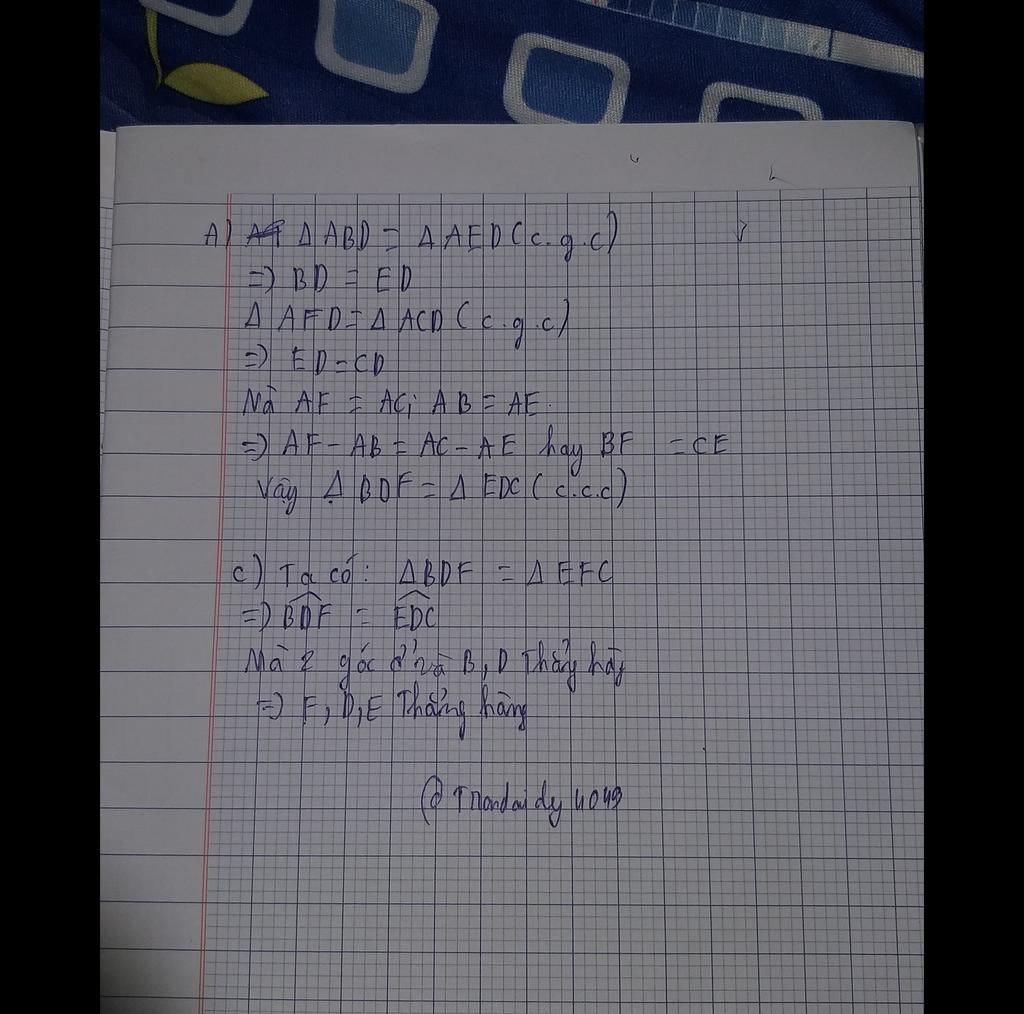 A) Δ ABD = Δ AED (c.g.c)
=> BD = ED
Δ AFD = Δ ACD (c.g.c)
=> ED = CD
Mà AF = AC; AB = AE.
=> AF - AB = AC - AE hay BF = CE
Vậy Δ BDF = Δ EDC (c.c.c)
c) Ta có: ΔBDF = Δ EFC
=> \widehat{BDF} = \widehat{EDC}
Mà 2 góc B, D
=> F, D, E Thẳng hàng
@ 4049